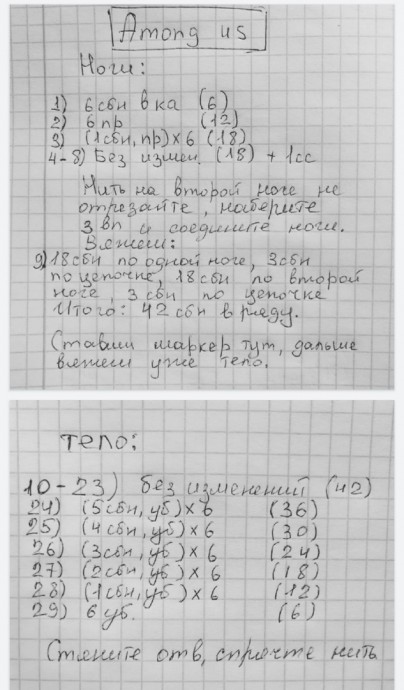 Among us
Ноги:
1) 6 сбн в ка (6)
2) 6 пр (12)
3) (1сбн, пр) х 6 (18)
4-8) Без измен. (18) + 1сс
Нить на второй ноге не
отрезайте, наберите
3 вп и соедините ноги.
Вяжем:
9) 18 сбн по одной ноге, 3сбн
по цепочке, 18 сбн по второй
ноге, 3 сбн по цепочке
Итого: 42 сбн в ряду.
Ставим маркер тут, дальше
вяжем уже тело.
Тело:
10-23) без изменений (42)
24) (5 сбн, уб) х 6 (36)
25) (4сбн, уб) х 6 (30)
26) (3сбн, уб) х 6 (24)
27) (2сбн, уб) х 6 (18)
28) (1сбн, уб) х 6 (12)
29) 6 уб. (6)
Стяните отв, спрячте нить